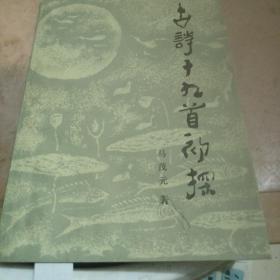 古詩十九首初探
馬茂元 著